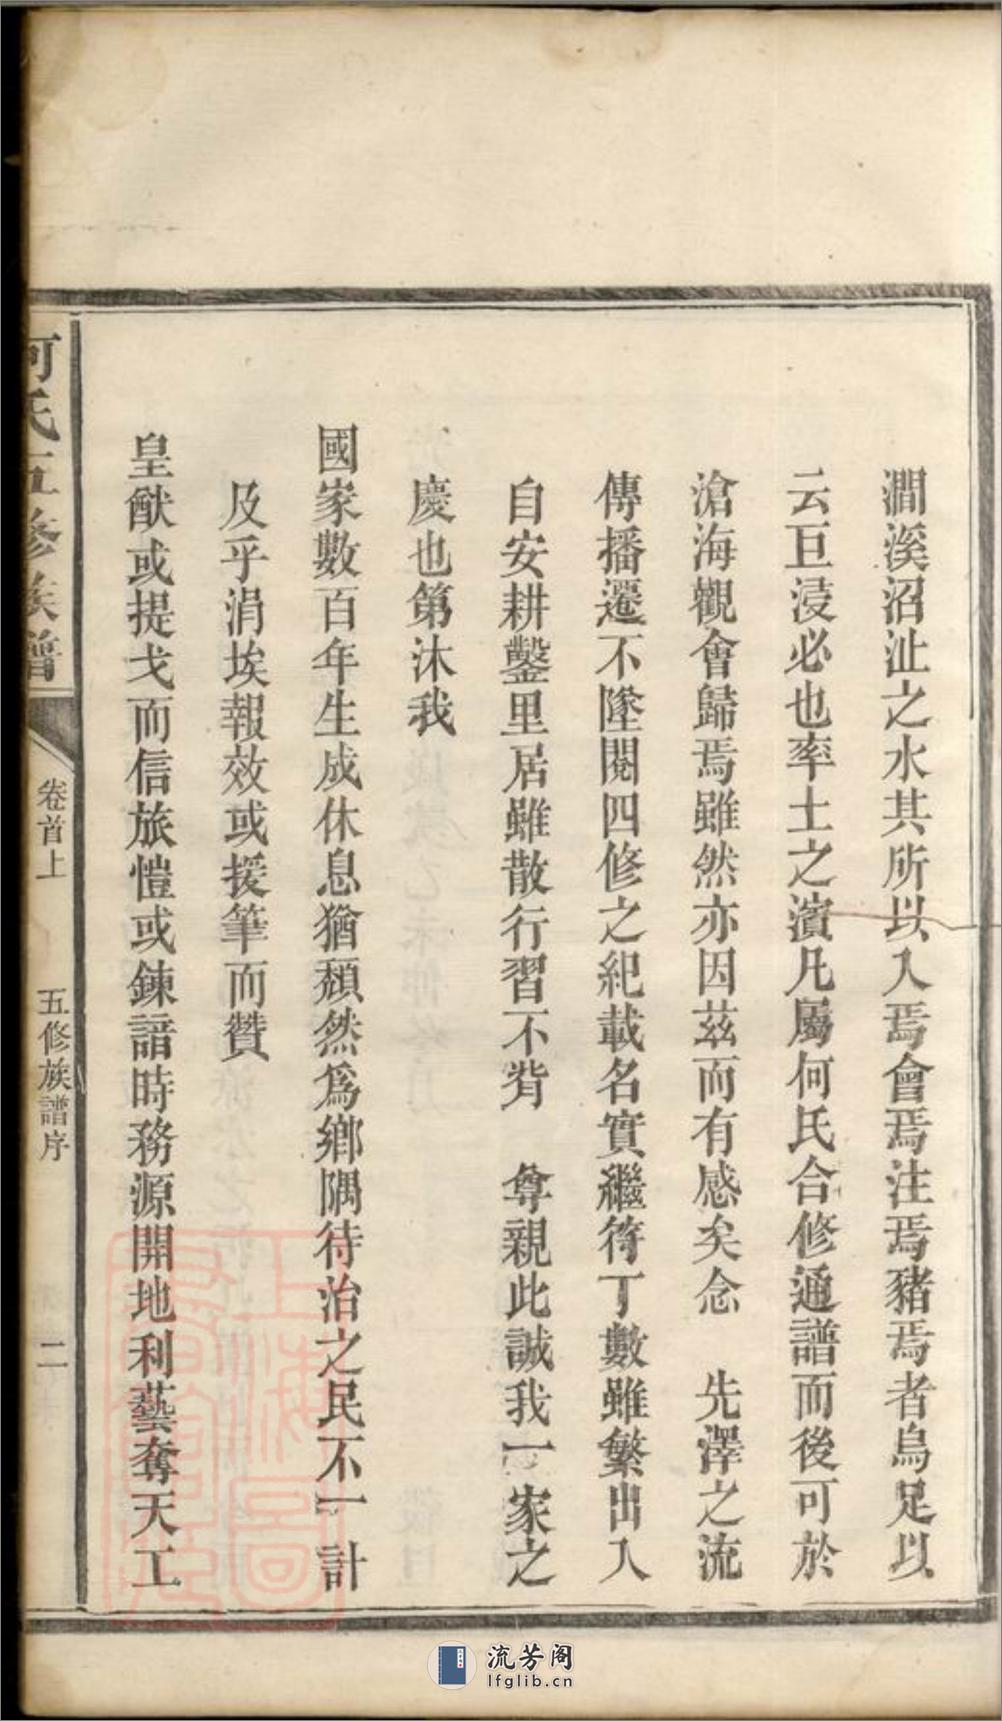 澗溪沼沚之水其所以入焉會焉注焉豬焉者烏足以
云巨浸必也率土之濱凡屬何氏合修通譜而後可於
滄海觀會歸焉雖然亦因茲而有感矣念　先澤之流
傳播遷不墜閱四修之紀載名實繼符丁數雖繁出入
自安耕鑿里居雖散行習不背　尊親此誠我一家之
慶也第沐我
國家數百年生成休息猶頽然爲鄉隅待治之民不一計
及乎涓埃報效或援筆而贊
皇猷或提戈而信旅愷或鍊諳時務源開地利藝奪天工
何氏五修族譜
卷首上
五修族譜序
二
上海圖書館藏
流芳阁
lfglib.cn